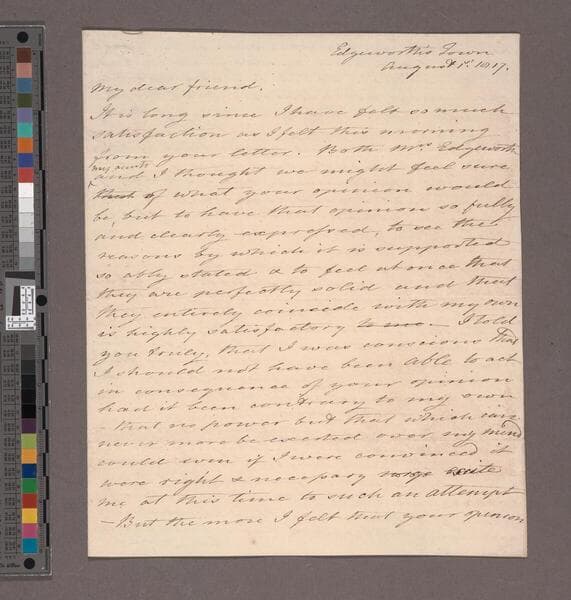 Edgeworth's Town
August 1st. 1817.
My dear friend.
It is long since I have felt so much
satisfaction as I felt this morning
from your letter. Both Mrs Edgeworth
my aunts
and I thought we might feel sure
that of what your opinion would
be, but to have that opinion so fully
and clearly expressed, to see the
reasons by which it is supported
so ably stated & to feel at once that
they are perfectly solid and that
they entirely coincide with my own
is highly satisfactory to me. I told
you truly, that I was conscious that
I should not have been able to act
in consequence of your opinion
had it been contrary to my own
- that no power but that which can
never more be exerted over my mind
could even if I were convinced it
were right & necessary excite
me at this time to such an attempt
- But the more I felt that your opinion